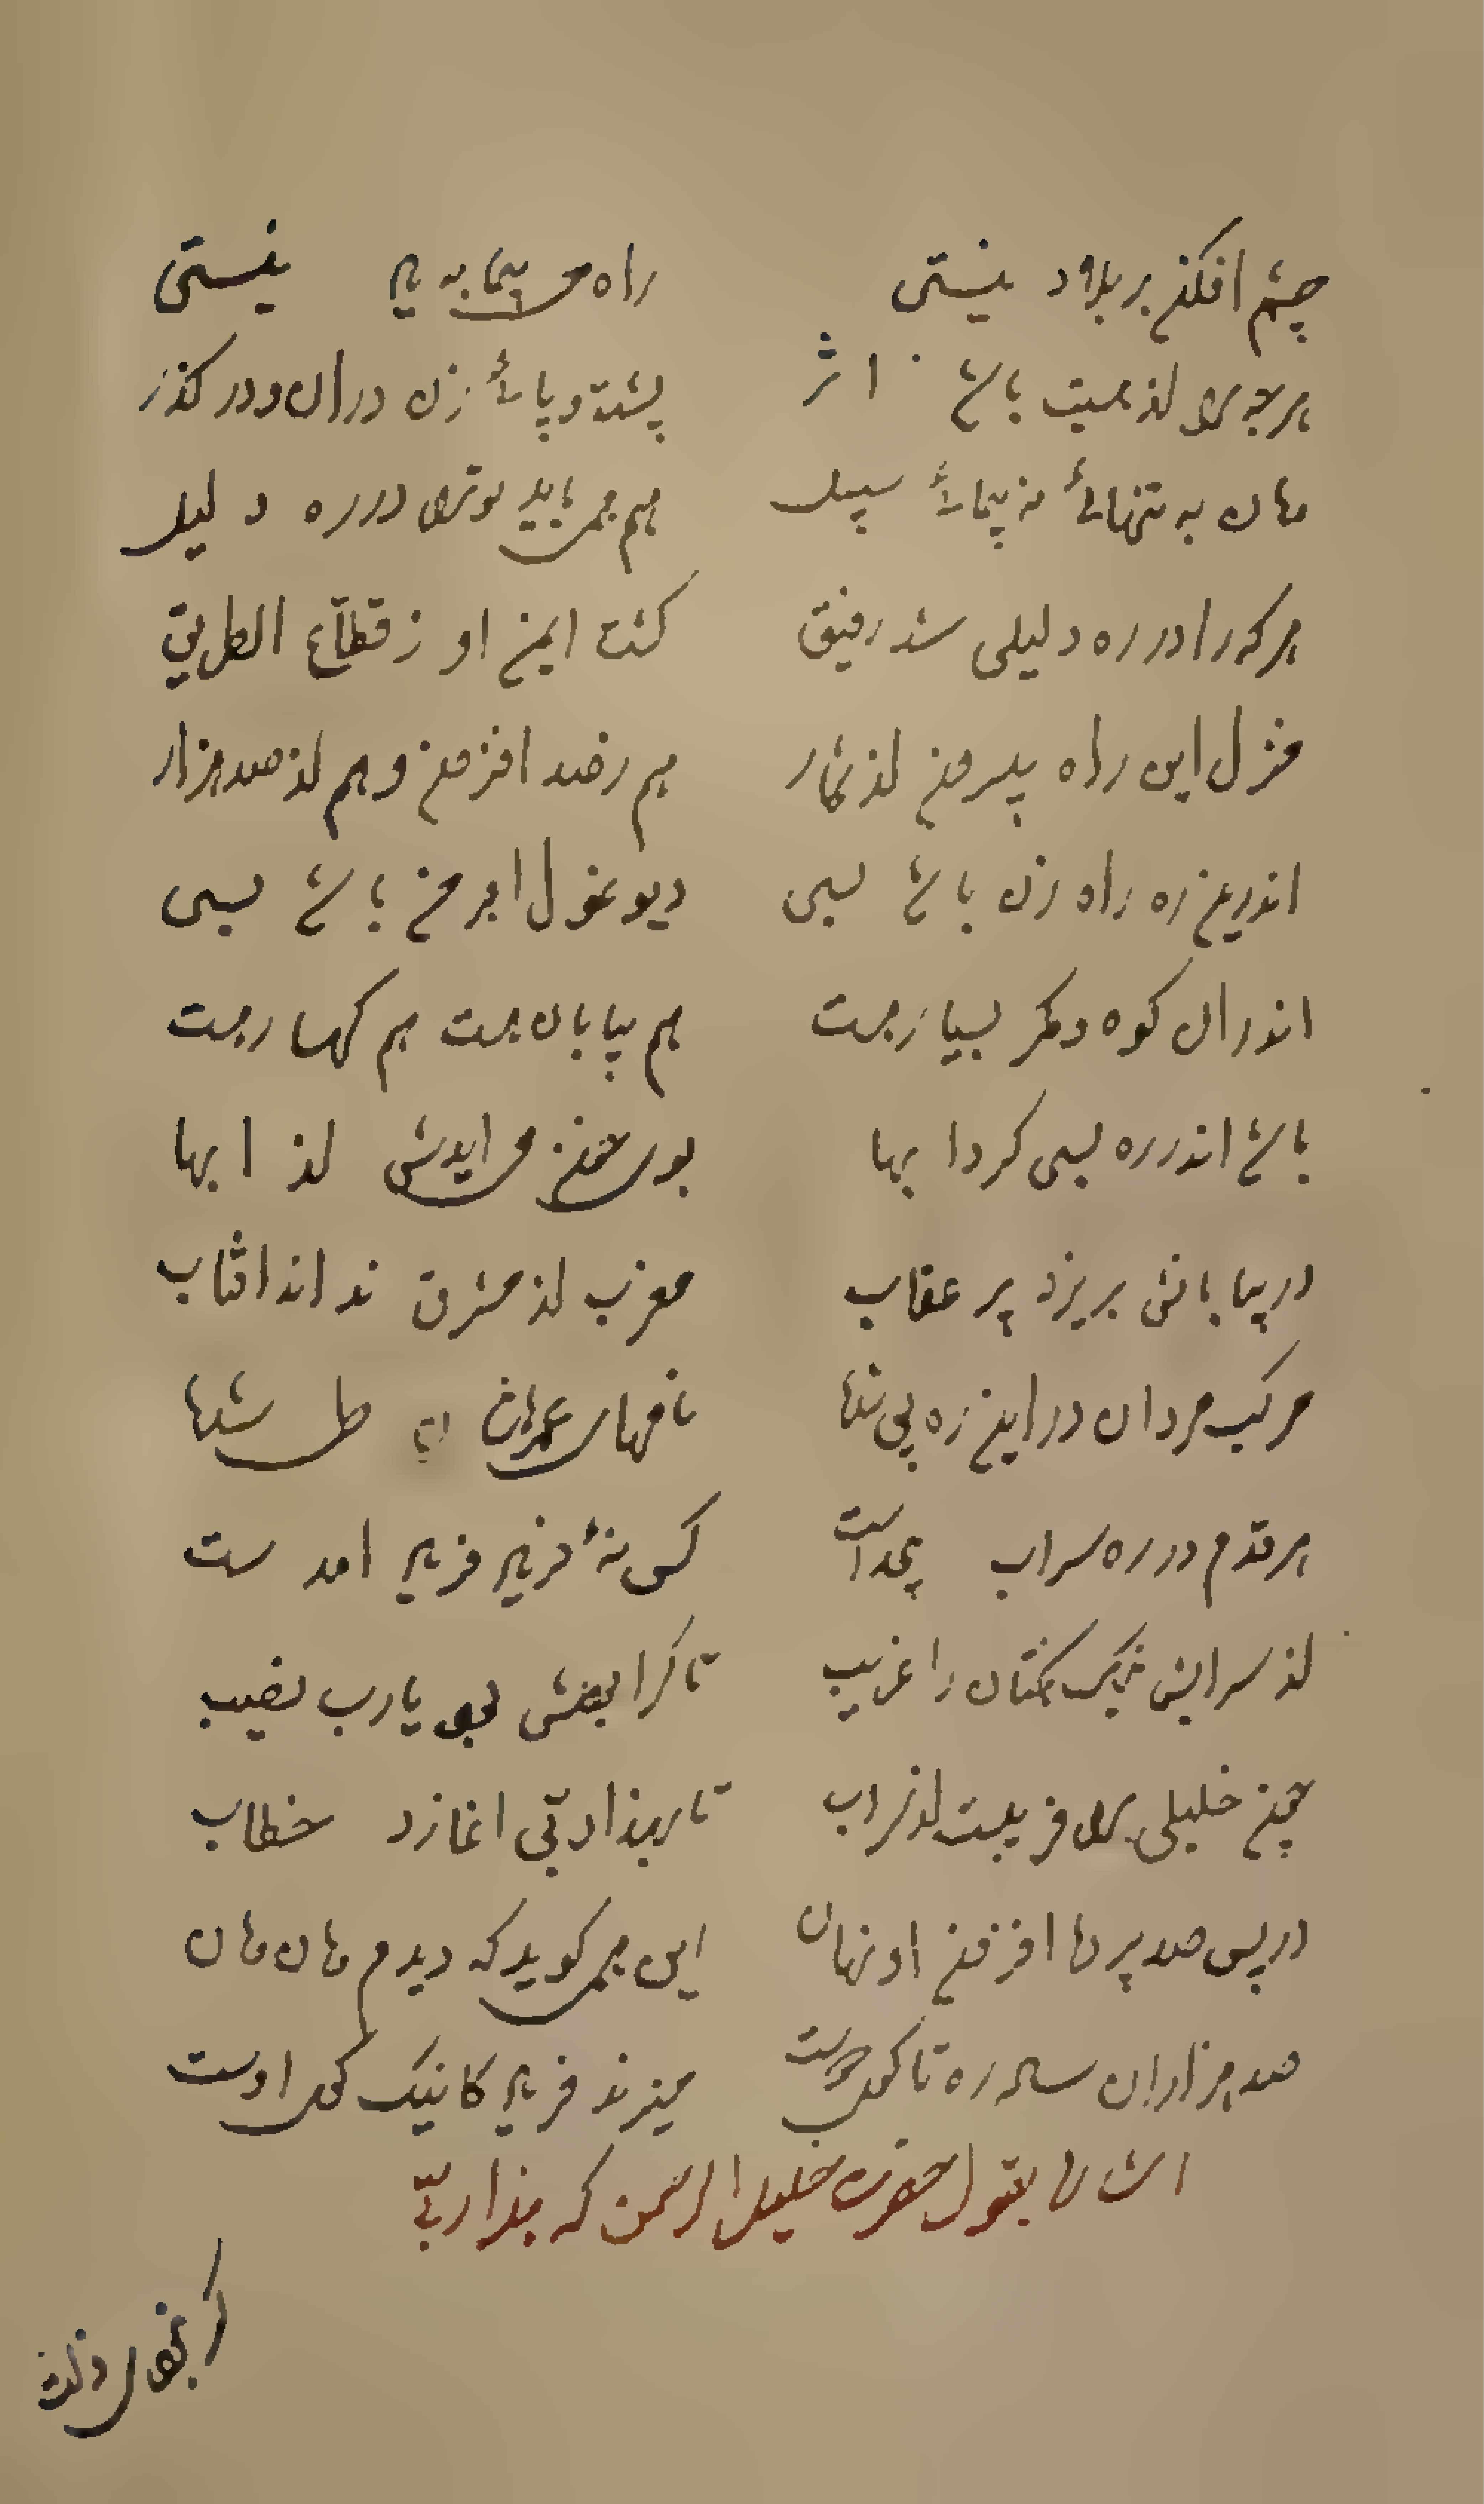 چشم افکن بر بلاد نیستی راه می پیما به پر نیستی
هرچه بینی از نیست باشد اثر پشت و پائی زن در ان و در کذر
هان به تنهائی نه پیمائی سبیل هم می باید تو را در ره دلیل
هر که را در ره دلیلی شد رفیق کشت ایمن او ز قطاع الطریق
منزل این راه بیرون از شمار هم ز صد افزون و هم از صد هزار
اندرین ره راه زن باشد بسی دیو غول ابرمن باشد بسی
اندر ان کوه و مکر بسیار هست هم بیابان هست هم کهسار هست
باشد اندر ره بسی کردابها بوی خون می ایدش از ابها
در بیابانش بریزد پر عقاب مغرب از مشرق نداند افتاب
مرکب مردان در این ره پی شتها نامهای عمرشان طی شتها
هر قدم در ره سراب بیحد است کس نه فریبر امد ست
از سرابش نیک مشتان را غریب تا کرا بخشش بود یارب نصیب
چون خلیلی را فریبست از سراب تا بهذا ربی اغازد خطاب
در پس صد پردها افزون او نهان این می کوید که دیدم هان هان
صد هزاران ساله ره تا کوی دوست میزند فریاد کاینک کوی اوست
اشاره بقول حضرت خلیل الرحمن که هذا ربی